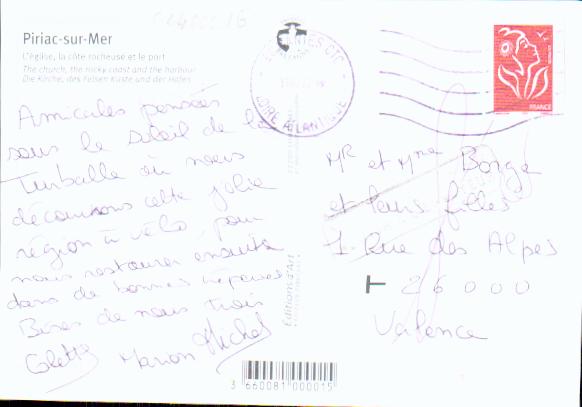 Piriac-sur-Mer
L'église, la côte rocheuse et le port
The church, the rocky coast and the harbour
Die Kirche, des Felsen Küste und der Hafen
Amicales pensées
sous le soleil de la
Turballe où nous
découvrons cette jolie
région à vélo, pour
nous restaurer ensuite
dans de bonnes crêperies
Bises de nous trois
Colette Marion Michel
NANTES CTC
LOIRE ATLANTIQUE
FRANCE
Mr et Mme Borge
et leurs filles
1 Rue des Alpes
T 26000
Valence
Editions d'Art
3 660081 000015